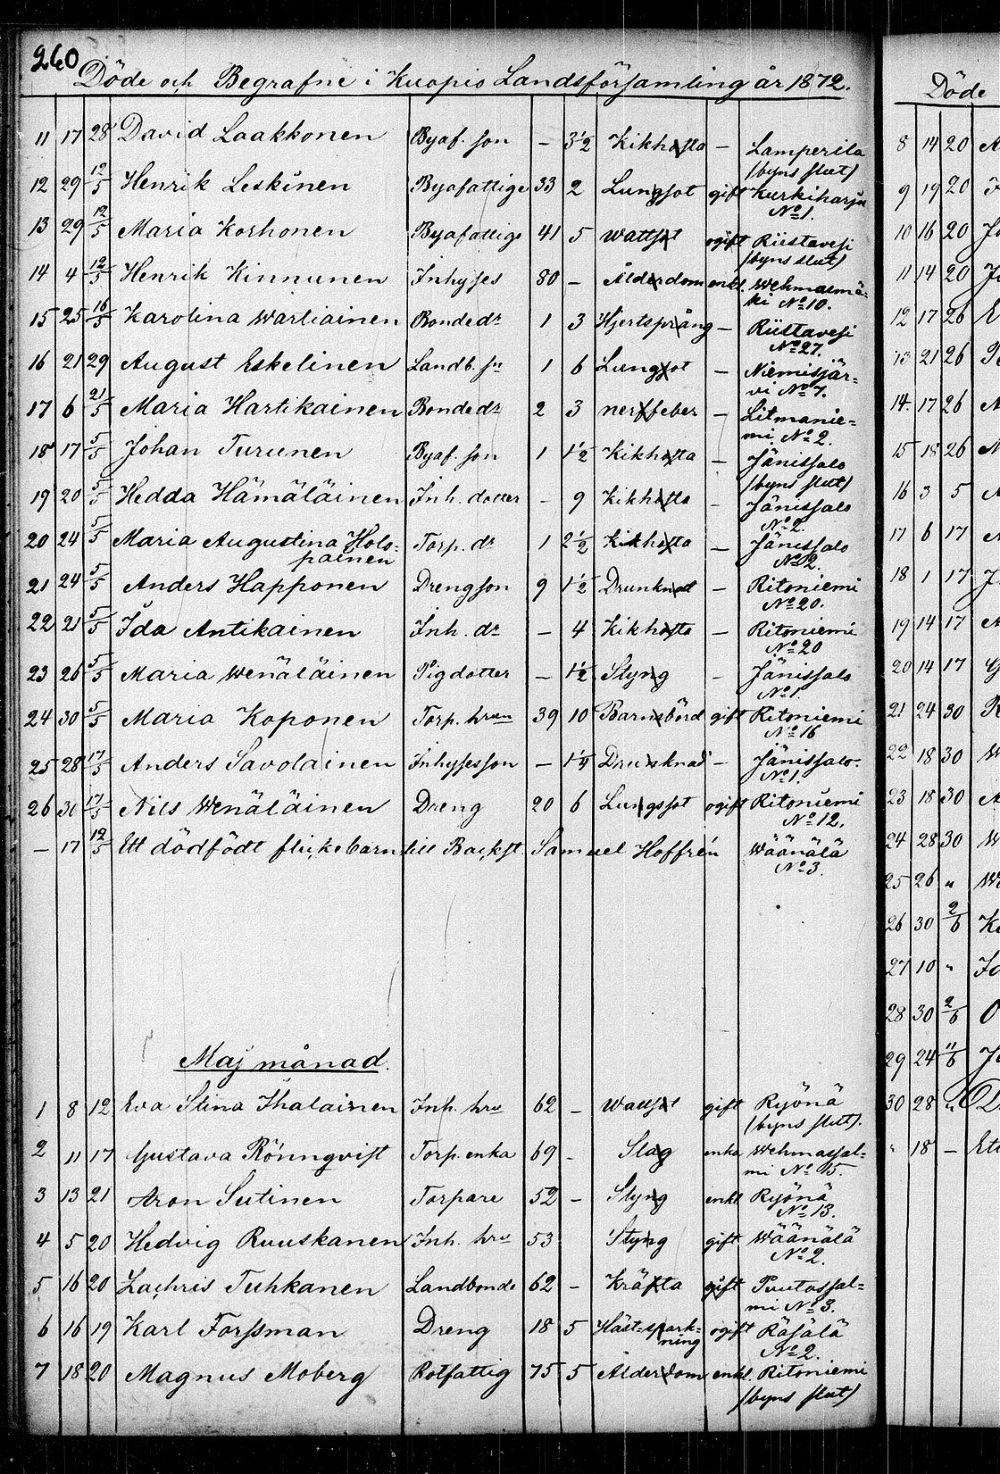 260
Döde och Begrafne i Kuopio Landsförsamling år 1872.
11 17 28 David Laakkonen Byaf. son – 3 1/2 Kikhosta – Lamperila
(byns slut)
12 29 12/5 Henrik Leskinen Byafattige 33 2 Lungsot gift Kurkiharju
No 1.
13 29 12/5 Maria Korhonen Byafattige 41 5 Wattsot ogift Riistavesi
(byns slut)
14 4 12/5 Henrik Kinnunen Inhyses 80 – Ålderdom enkl. Wehmasmä-
ki No 10.
15 25 16/5 Karolina Wartiainen Bonde dr 1 3 Hjertsprång – Riistavesi
No 27.
16 21 29 August Eskelinen Landb. sn 1 6 Lungsot – Niemisjär-
vi No 7.
17 6 21/5 Maria Hartikainen Bonde dr 2 3 nerffeber – Litmanie-
mi No 2.
18 17 5/5 Johan Turunen Byaf. son 1 1 1/2 Kikhosta – Jänissalo
(byns slut)
19 20 5/5 Hedda Hämäläinen Inh. dotter – 9 Kikhosta – Jänissalo
No 2.
20 24 5/5 Maria Augustina Holo-
painen Torp. dr 1 2 1/2 Kikhosta – Jänissalo
No 2.
21 24 5/5 Anders Happonen Drengson 9 1 1/2 Drunknat – Ritoniemi
No 20.
22 21 5/5 Ida Antikainen Inh. dr – 4 Kikhosta – Ritoniemi
No 20
23 26 5/5 Maria Wenäläinen Pigdotter – 1 1/2 Styng – Jänissalo
No 1.
24 30 5/5 Maria Koponen Torp. hrun 39 10 Barnsbörd gift Ritoniemi
No 16
25 28 17/5 Anders Savolainen Inhysesson – 1 1/4 Drunknad – Jänissalo.
No 1.
26 30 17/5 Nils Wenäläinen Dreng 20 6 Lungsot ogift Ritoniemi
No 12.
– 17 12/5 Ett dödfödt flickebarn till Backst. Samuel Hoffrén Wäänälä
No 3.
Maj månad.
1 8 12 Eva Stina Ihalainen Inh. hru 62 – Wattsot gift Ryönä
(byns slut).
2 11 17 Gustava Rönnqvist Torp. enka 69 – Slag enka Wehmassal-
mi No 15.
3 13 21 Aron Sutinen Torpare 52 – Styng enkl Ryönä
No 13.
4 5 20 Hedvig Ruuskanen Inh. hru 53 Styng gift Wäänälä
No 2.
5 16 20 Zachris Tuhkanen Landbonde 62 – Kräfta gift Puutossal-
mi No 3.
6 16 19 Karl Forssman Dreng 18 5 Häst-spark-
ning ogift Räsälä
No 2.
7 18 20 Magnus Moberg Rotfattig 75 5 Ålderdom enkl. Ritoniemi
(byns slut)
Döde
8 14 20
9 19 20
10 16 20
11 14 20
12 17 26
13 21 26
14. 17 26
15 18 26
16 3 5
17 6 17
18 1 17
19 14 17
20 14 17
21 24 30
22 18 30
23 18 30
24 28 30
25 26 "
26 30 2/6
27 10 "
28 30 2/6
29 24 11/6
30 28 "
" 18 –